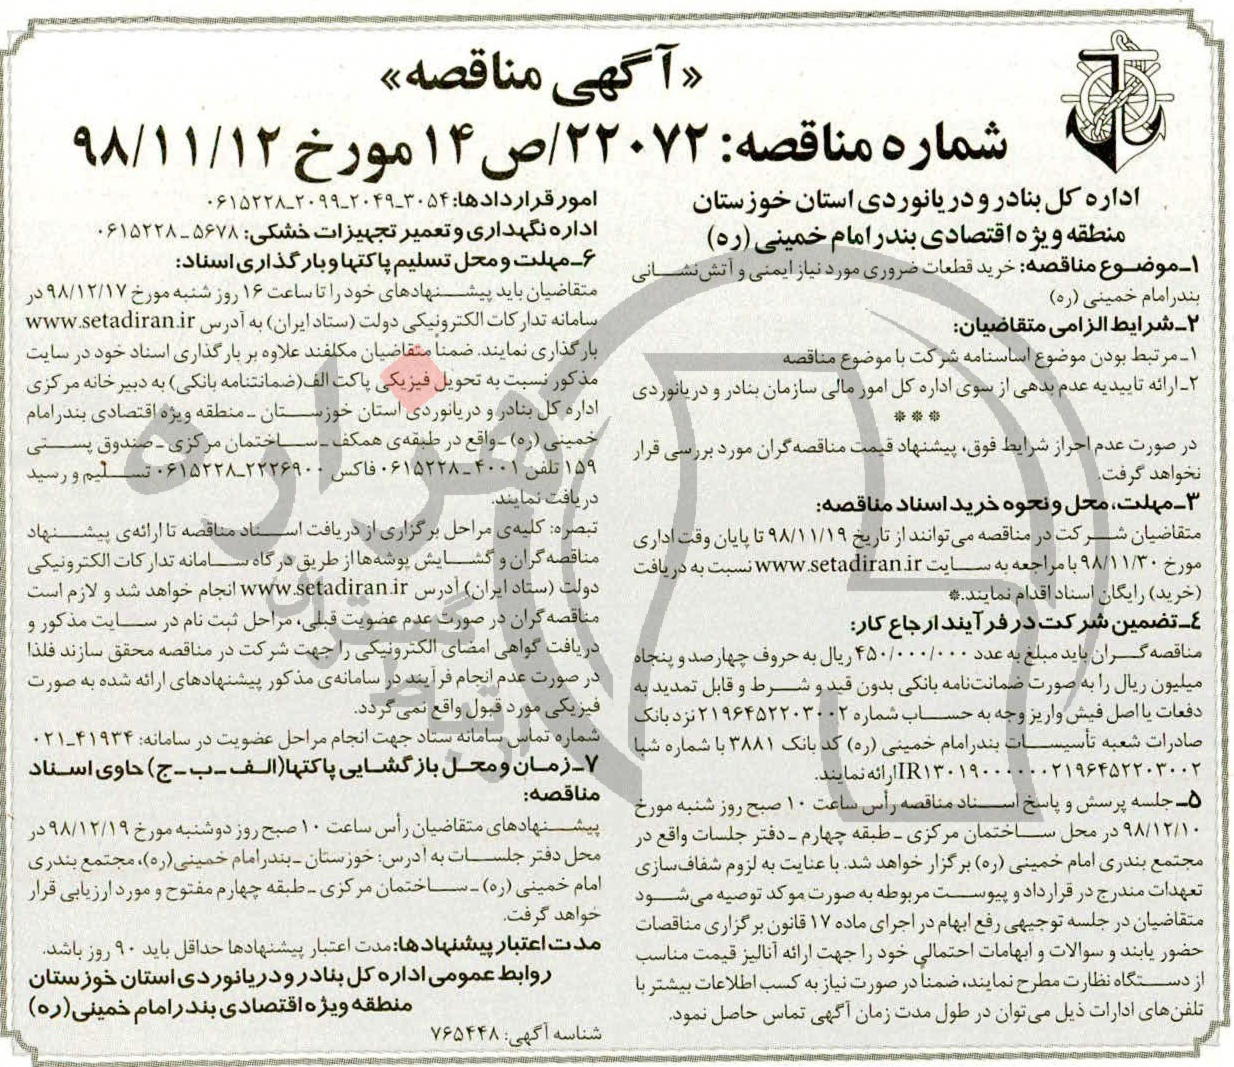 «آگهی مناقصه»
شماره مناقصه: ۲۲۰۷۲/ص۱۴ مورخ ۹۸/۱۱/۱۲
اداره کل بنادر و دریانوردی استان خوزستان
منطقه ویژه اقتصادی بندر امام خمینی (ره)
۱ـ موضوع مناقصه: خرید قطعات ضروری مورد نیاز ایمنی و آتش‌نشانی
بندر امام خمینی (ره)
۲ـ شرایط الزامی متقاضیان:
۱ـ مرتبط بودن موضوع اساسنامه شرکت با موضوع مناقصه
۲ـ ارائه تاییدیه عدم بدهی از سوی اداره کل امور مالی سازمان بنادر و دریانوردی
***
در صورت عدم احراز شرایط فوق، پیشنهاد قیمت مناقصه‌گران مورد بررسی قرار
نخواهد گرفت.
۳ـ مهلت، محل و نحوه خرید اسناد مناقصه:
متقاضیان شرکت در مناقصه می‌توانند از تاریخ ۹۸/۱۱/۱۹ تا پایان وقت اداری
مورخ ۹۸/۱۱/۳۰ با مراجعه به سایت www.setadiran.ir نسبت به دریافت
(خرید) رایگان اسناد اقدام نمایند.*
۴ـ تضمین شرکت در فرآیند ارجاع کار:
مناقصه‌گران باید مبلغ به عدد ۴۵۰/۰۰۰/۰۰۰ ریال به حروف چهارصد و پنجاه
میلیون ریال را به صورت ضمانت‌نامه بانکی بدون قید و شرط و قابل تمدید به
دفعات یا اصل فیش واریز وجه به حساب شماره ۲۱۹۶۴۵۲۲۰۳۰۰۲ نزد بانک
صادرات شعبه تأسیسات بندر امام خمینی (ره) کد بانک ۳۸۸۱ با شماره شبا
IR۱۳۰۱۹۰۰۰۰۰۰۰۲۱۹۶۴۵۲۲۰۳۰۰۲ ارائه نمایند.
۵ـ جلسه پرسش و پاسخ اسناد مناقصه رأس ساعت ۱۰ صبح روز شنبه مورخ
۹۸/۱۲/۱۰ در محل ساختمان مرکزی ـ طبقه چهارم ـ دفتر جلسات واقع در
مجتمع بندری امام خمینی (ره) برگزار خواهد شد. با عنایت به لزوم شفاف‌سازی
تعهدات مندرج در قرارداد و پیوست مربوطه به صورت موکد توصیه می‌شود
متقاضیان در جلسه توجیهی رفع ابهام در اجرای ماده ۱۷ قانون برگزاری مناقصات
حضور یابند و سوالات و ابهامات احتمالی خود را جهت ارائه آنالیز قیمت مناسب
از دستگاه نظارت مطرح نمایند، ضمناً در صورت نیاز به کسب اطلاعات بیشتر با
تلفن‌های ادارات ذیل می‌توان در طول مدت زمان آگهی تماس حاصل نمود.
امور قراردادها: ۳۰۵۴ـ۲۰۴۹ـ۲۰۹۹ـ۰۶۱۵۲۲۸
اداره نگهداری و تعمیر تجهیزات خشکی: ۵۶۷۸ ـ ۰۶۱۵۲۲۸
۶ـ مهلت و محل تسلیم پاکتها و بارگذاری اسناد:
متقاضیان باید پیشنهادهای خود را تا ساعت ۱۶ روز شنبه مورخ ۹۸/۱۲/۱۷ در
سامانه تدارکات الکترونیکی دولت (ستاد ایران) به آدرس www.setadiran.ir
بارگذاری نمایند. ضمناً متقاضیان مکلفند علاوه بر بارگذاری اسناد خود در سایت
مذکور نسبت به تحویل فیزیکی پاکت الف(ضمانتنامه بانکی) به دبیرخانه مرکزی
اداره کل بنادر و دریانوردی استان خوزستان ـ منطقه ویژه اقتصادی بندر امام
خمینی (ره) ـ واقع در طبقه‌ی همکف ـ ساختمان مرکزی ـ صندوق پستی
۱۵۹ تلفن ۴۰۰۱ ـ ۰۶۱۵۲۲۸ فاکس ۲۲۲۶۹۰۰ـ۰۶۱۵۲۲۸ تسلیم و رسید
دریافت نمایند.
تبصره: کلیه‌ی مراحل برگزاری از دریافت اسناد مناقصه تا ارائه‌ی پیشنهاد
مناقصه‌گران و گشایش پوشه‌ها از طریق درگاه سامانه تدارکات الکترونیکی
دولت (ستاد ایران) آدرس www.setadiran.ir انجام خواهد شد و لازم است
مناقصه‌گران در صورت عدم عضویت قبلی، مراحل ثبت نام در سایت مذکور و
دریافت گواهی امضای الکترونیکی را جهت شرکت در مناقصه محقق سازند فلذا
در صورت عدم انجام فرآیند در سامانه‌ی مذکور پیشنهادهای ارائه شده به صورت
فیزیکی مورد قبول واقع نمی‌گردد.
شماره تماس سامانه ستاد جهت انجام مراحل عضویت در سامانه: ۴۱۹۳۴ـ۰۲۱
۷ـ زمان و محل بازگشایی پاکتها(الف ـ ب ـ ج) حاوی اسناد
مناقصه:
پیشنهادهای متقاضیان رأس ساعت ۱۰ صبح روز دوشنبه مورخ ۹۸/۱۲/۱۹ در
محل دفتر جلسات به آدرس: خوزستان ـ بندر امام خمینی(ره)، مجتمع بندری
امام خمینی (ره) ـ ساختمان مرکزی ـ طبقه چهارم مفتوح و مورد ارزیابی قرار
خواهد گرفت.
مدت اعتبار پیشنهادها: مدت اعتبار پیشنهادها حداقل باید ۹۰ روز باشد.
روابط عمومی اداره کل بنادر و دریانوردی استان خوزستان
منطقه ویژه اقتصادی بندر امام خمینی(ره)
شناسه آگهی: ۷۶۵۴۴۸
هزاره